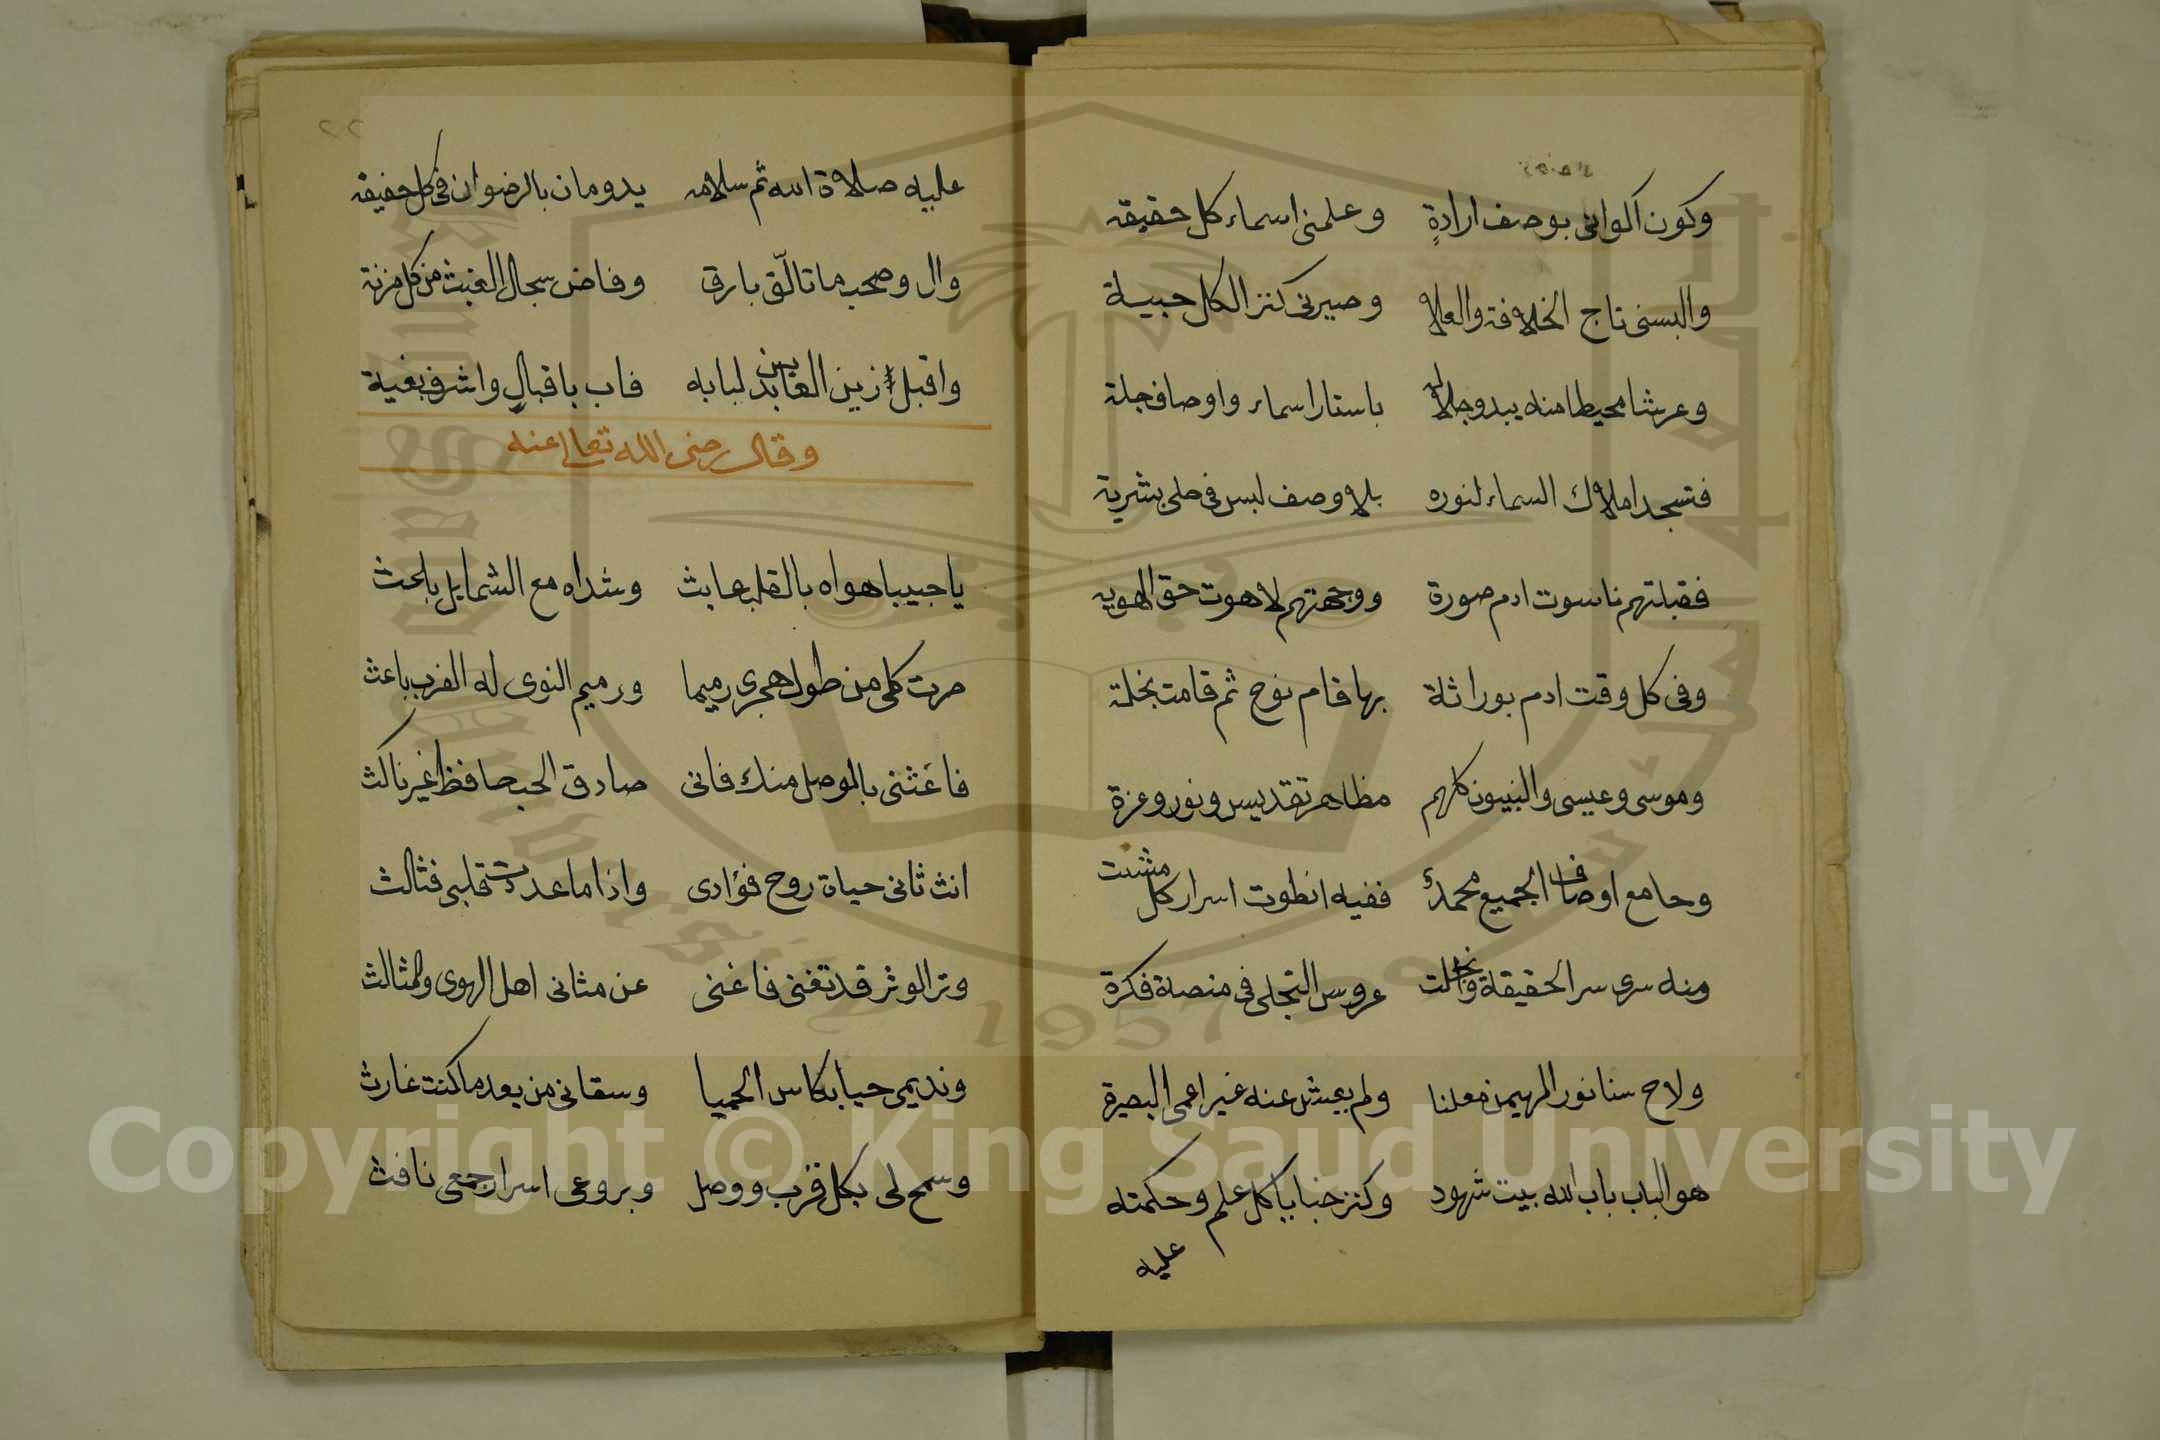 وكون اكوانى بوصف ارادةٍ وعلمنى اسماء كل حقيقه
والبسنى تاج الخلافة والعلا وصيرنى كنز الكل جبيلة
وعرشا محيطا منه يبدو جلاله باستار اسماء واوصاف جلة
فتسجد املاك السماء لنوره بلا وصف لبس فى حلى بشرية
فقبلتهم ناسوت ادم صورة ووجهتهم لاهوت حق الهويه
وفى كل وقت ادم بوراثة بها قام نوح ثم قامت بخلة
وموسى وعيسى والنبيون كلهم مظاهر تقديس ونور وعزة
وجامع اوصاف الجميع محمدٌ ففيه انطوت اسرار كل مشتت
ومنه سرى سر الحقيقة وانجلت عروس التجلى فى منصة فكرة
ولاح سنا نور المهيمن معلنا ولم يعش عنه غير اعمى البصيرة
هو الباب باب الله بيت شهود وكنز خبايا كل علم وحكمته
عليه
٢٢
عليه صلاة الله ثم سلامه يدومان بالرضوان فى كل حقيقه
وال وصحب ما تالّق بارق وفاض سجال الغيث من كل مزنة
واقبل زين العابدين لبابه فاب باقبالٍ واشرف بغية
وقال رضى الله تعالى عنه
يا حبيبا هواه بالقلب عابث وشداه مع الشمايل باحث
صرت كلى من طول هجرى رميما ورميم النوى له القرب باعث
فاغثنى بالوصل منك فانى صادق الحب حافظا غير ناكث
انت ثانى حياة روح فؤادى واذا ما عددت قلبى فثالث
وتر الوثر قد تغنى فاغنى عن مثانى اهل الهوى والمثالث
ونديمى حيا بكاس الحميا وسقانى من بعد ما كنت غارث
وسمح لى بكل قرب ووصل وبروعى اسرار جمعى نافث
Copyright © King Saud University
King Saud University
1957